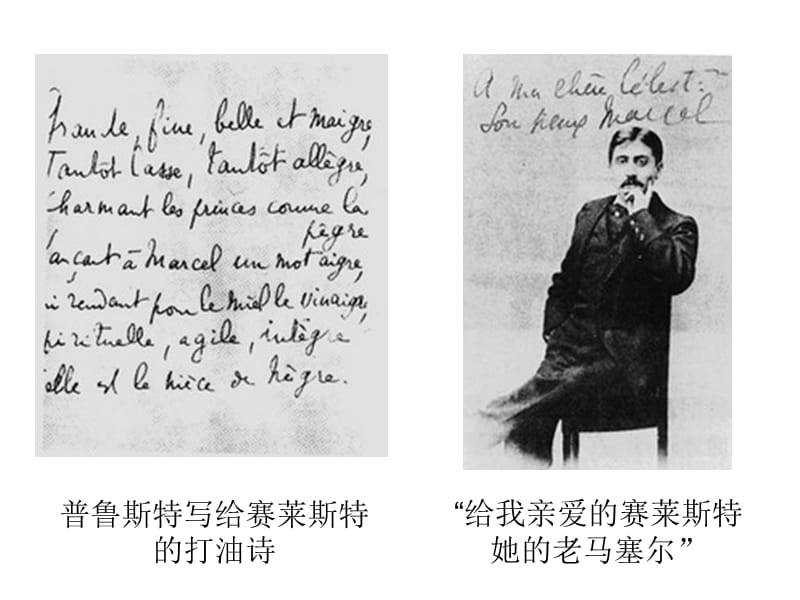 Grande, fine, belle et maigre,
Tantôt lasse, tantôt allègre,
Charmant les princes comme la
pègre
ançant à Marcel un mot aigre,
ui rendant pour le miel le vinaigre,
pirituelle, agile, intègre
elle est la nièce de Nègre.
A ma chère Célest
Son vieux Marcel
普鲁斯特写给赛莱斯特
的打油诗
“给我亲爱的赛莱斯特
她的老马塞尔”